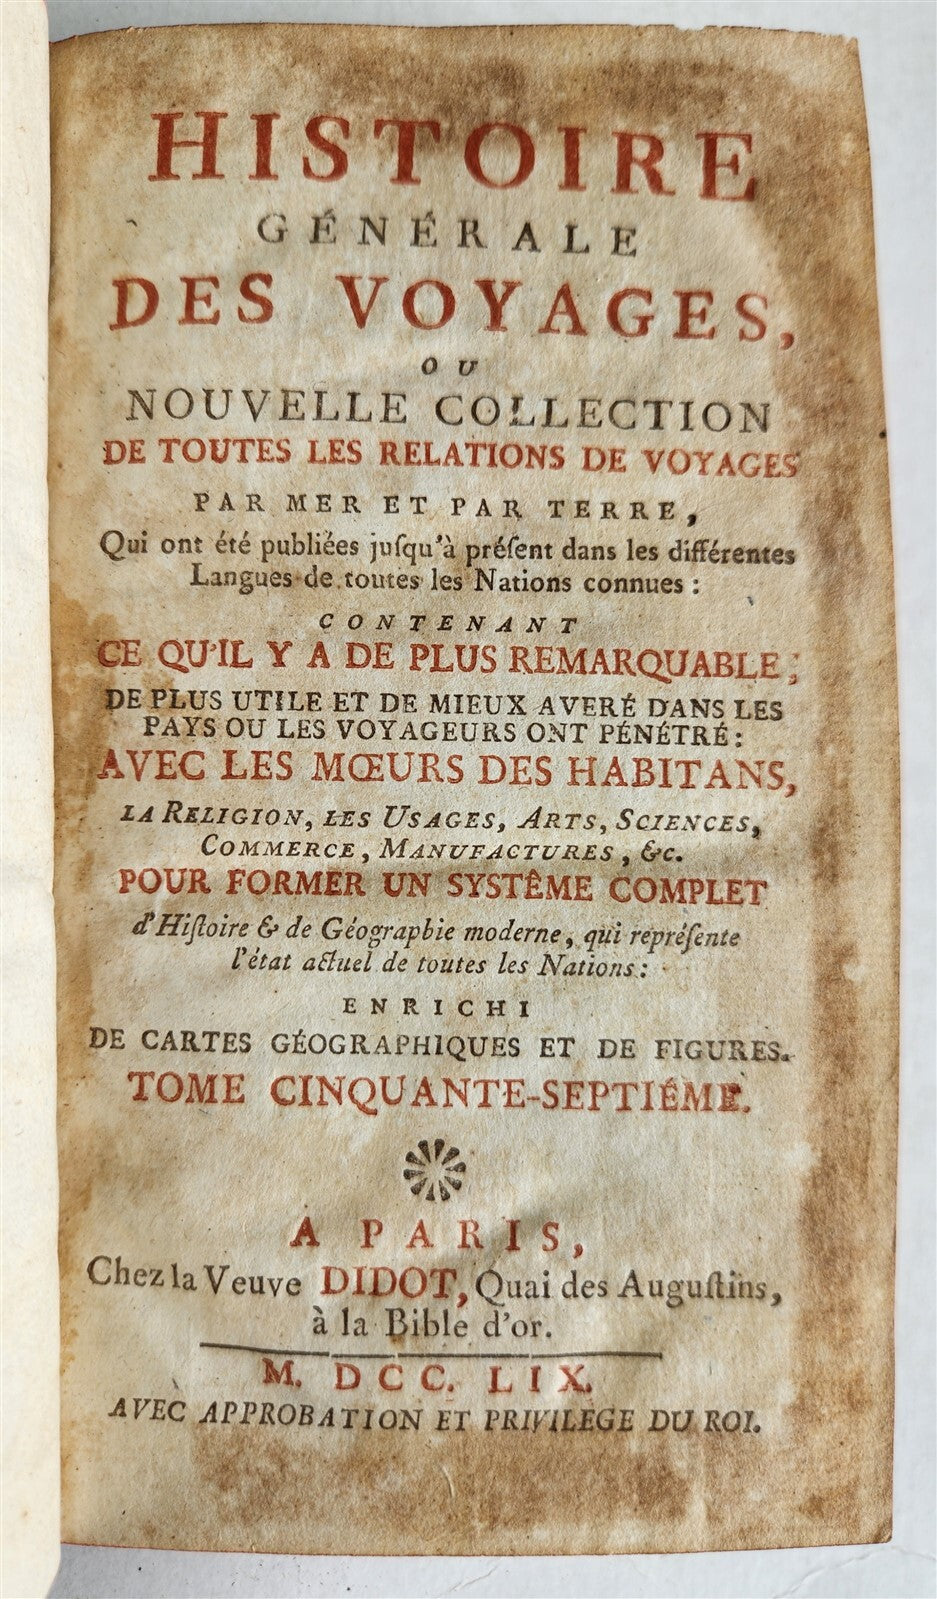 HISTOIRE
GÉNÉRALE
DES VOYAGES,
OU
NOUVELLE COLLECTION
DE TOUTES LES RELATIONS DE VOYAGES
PAR MER ET PAR TERRE,
Qui ont été publiées juſqu'à préſent dans les différentes
Langues de toutes les Nations connues :
CONTENANT
CE QU'IL Y A DE PLUS REMARQUABLE ;
DE PLUS UTILE ET DE MIEUX AVERÉ DANS LES
PAYS OU LES VOYAGEURS ONT PÉNÉTRÉ :
AVEC LES MŒURS DES HABITANS,
LA RELIGION, LES USAGES, ARTS, SCIENCES,
COMMERCE, MANUFACTURES, &c.
POUR FORMER UN SYSTÊME COMPLET
d'Hiſtoire & de Géographie moderne, qui repréſente
l'état actuel de toutes les Nations :
ENRICHI
DE CARTES GÉOGRAPHIQUES ET DE FIGURES.
TOME CINQUANTE-SEPTIÉME.
A PARIS,
Chez la Veuve DIDOT, Quai des Auguſtins,
à la Bible d'or.
M. DCC. LIX.
AVEC APPROBATION ET PRIVILEGE DU ROI.